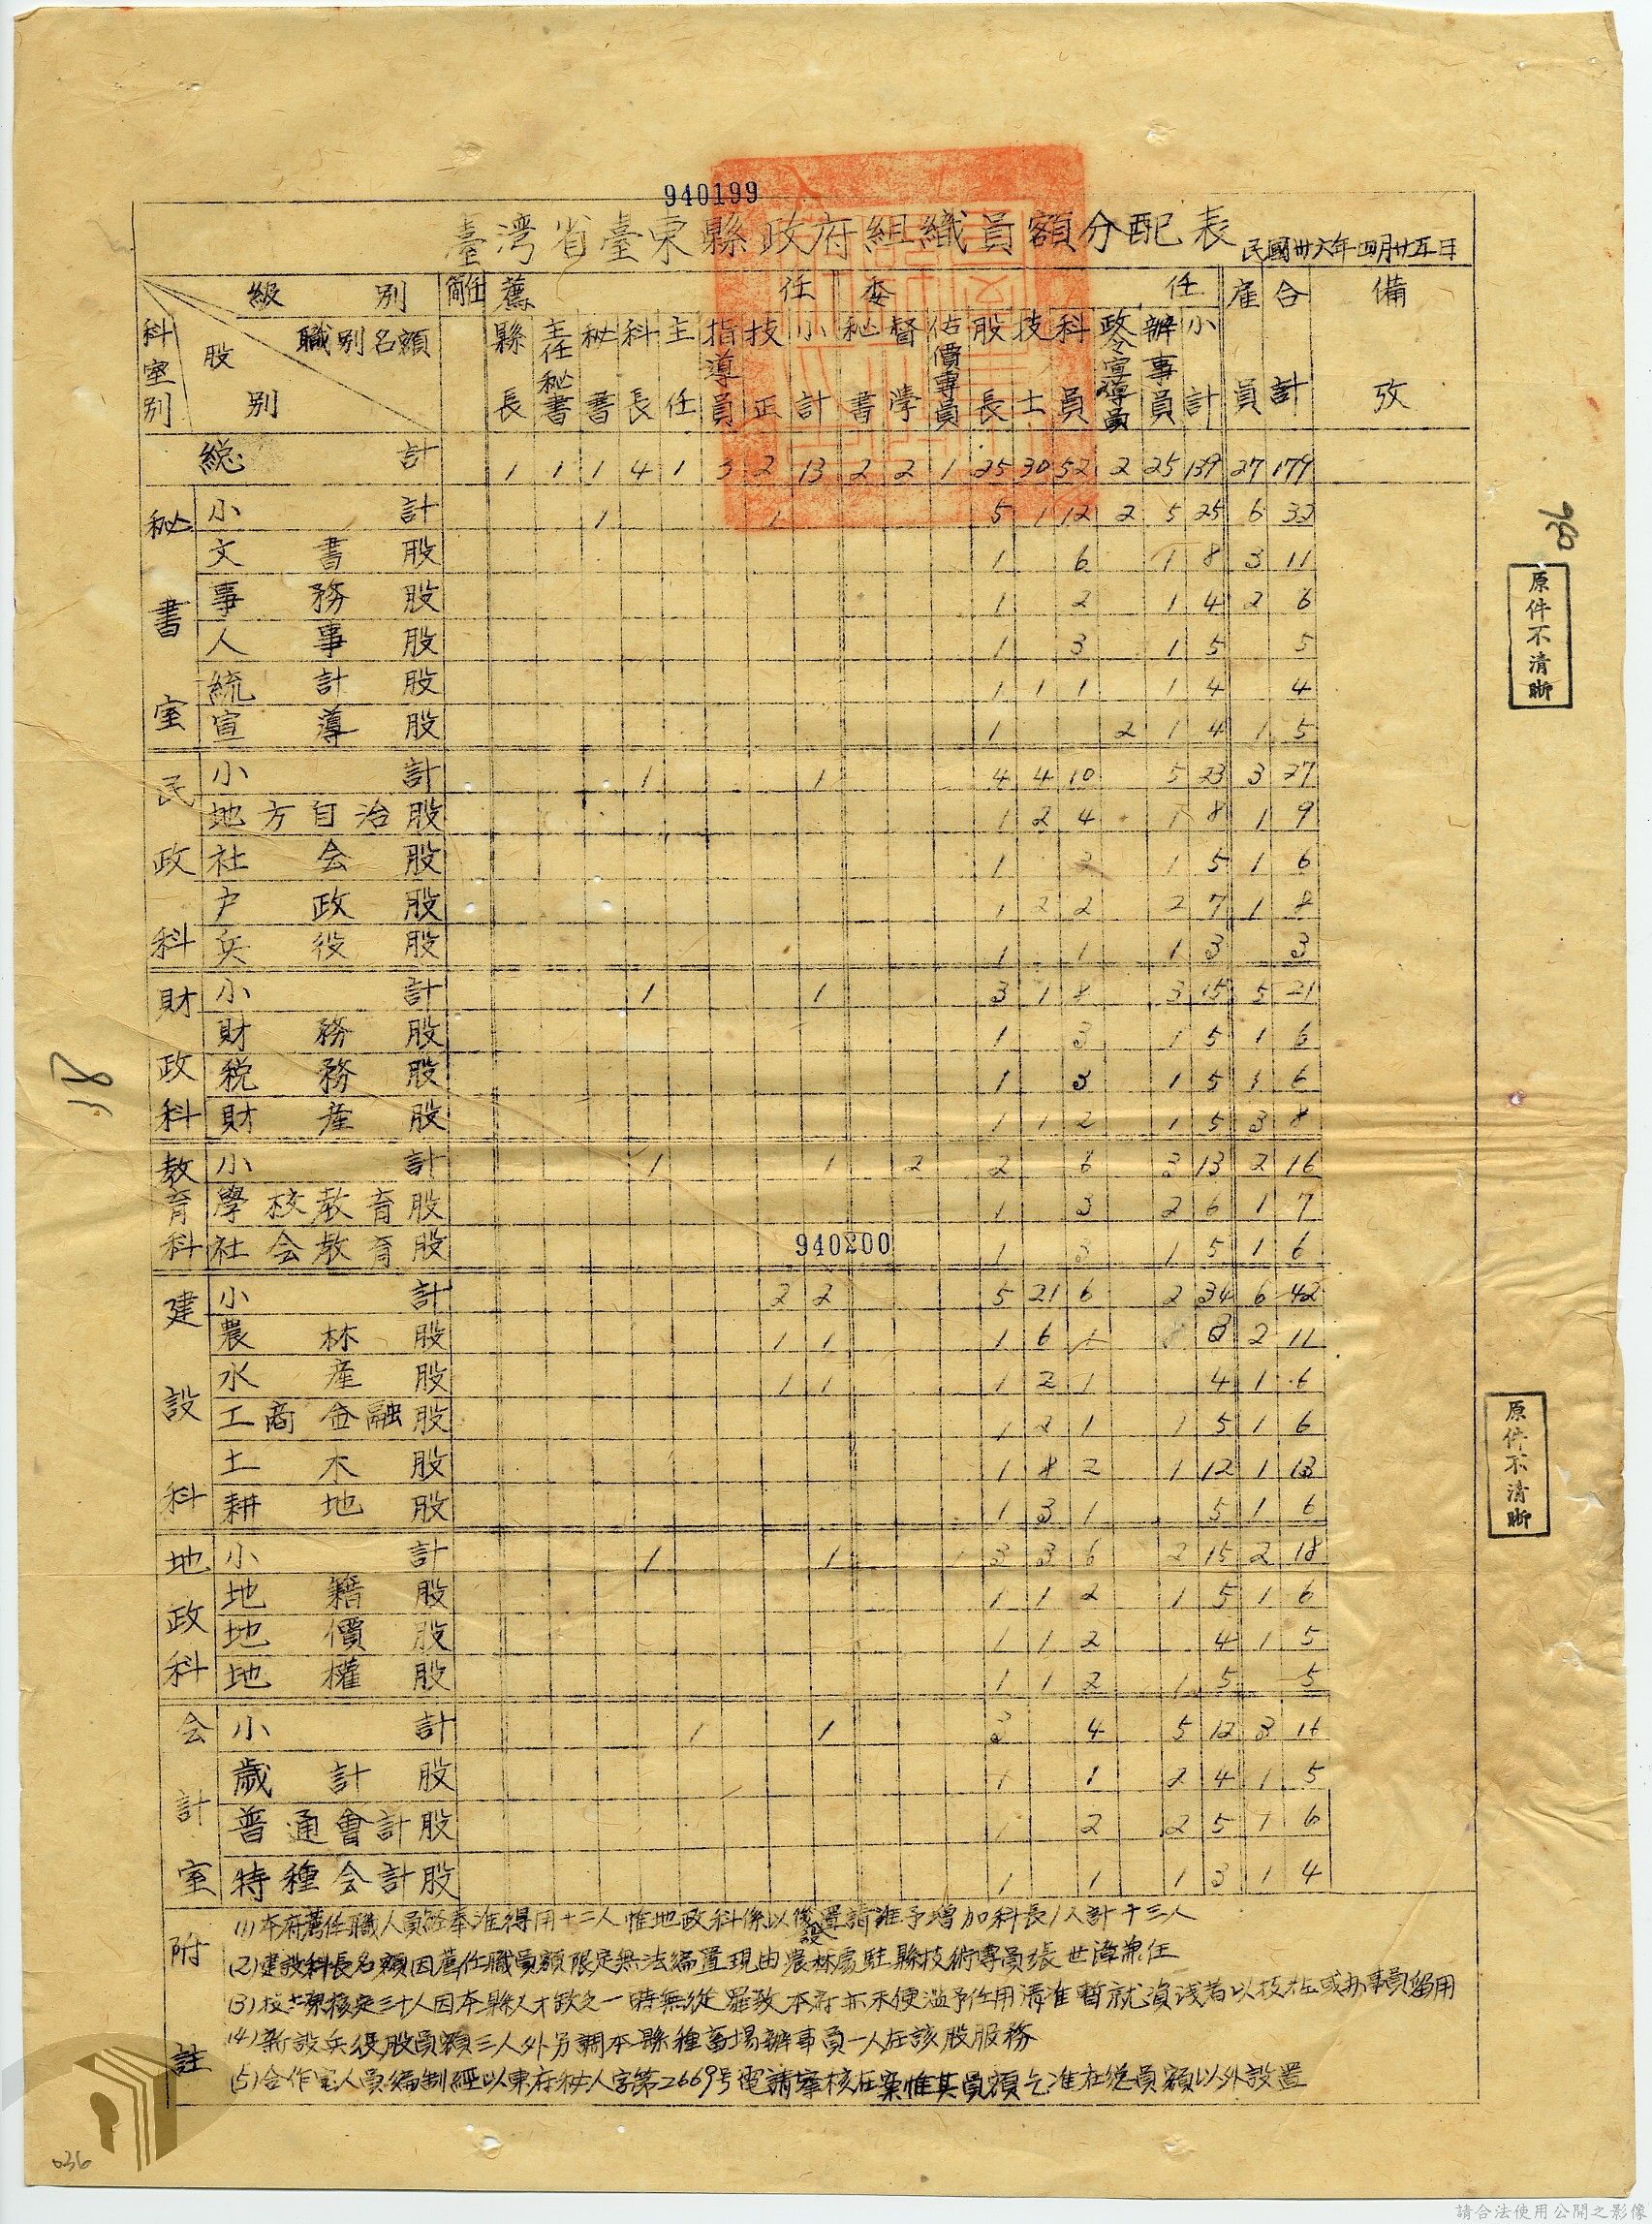 940199
臺灣省臺東縣政府組織員額分配表 民國卅六年四月廿五日
級別 簡任 薦任 委任 雇員 合計 備攷
科室別 股別 職別名額 縣長 主任秘書 秘書 科長 主任 指導員 技正 小計 秘書 督學 估價專員 股長 技士 科員 政令宣導員 辦事員 小計
總計 1 1 1 4 1 3 2 13 2 2 1 25 30 52 2 25 139 27 179
秘書室 小計 1 1 5 1 12 2 5 25 6 32
文書股 1 6 1 8 3 11
事務股 1 2 1 4 2 6
人事股 1 3 1 5 5
統計股 1 1 1 1 4 4
宣導股 1 2 1 4 1 5
民政科 小計 1 1 4 4 10 5 23 3 27
地方自治股 1 2 4 1 8 1 9
社会股 1 3 1 5 1 6
户政股 1 2 2 2 7 1 8
兵役股 1 1 1 3 3
財政科 小計 1 1 3 1 8 3 15 5 21
財務股 1 3 1 5 1 6
税務股 1 3 1 5 1 6
財産股 1 1 2 1 5 3 8
教育科 小計 1 1 2 2 6 3 13 2 16
學校教育股 1 3 2 6 1 7
社会教育股 1 3 1 5 1 6
940200
建設科 小計 2 2 5 21 6 2 34 6 42
農林股 1 1 1 6 1 8 2 11
水産股 1 1 1 2 1 4 1 6
工商金融股 1 2 1 1 5 1 6
土木股 1 8 2 1 12 1 13
耕地股 1 3 1 5 1 6
地政科 小計 1 1 1 3 3 6 2 15 2 18
地籍股 1 1 2 1 5 1 6
地價股 1 1 2 4 1 5
地權股 1 1 2 1 5 5
会計室 小計 1 1 3 4 5 12 3 16
歲計股 1 1 2 4 1 5
普通會計股 1 2 2 5 1 6
特種会計股 1 1 1 3 1 4
附註
(1)本府薦任職人員經奉准得用十二人惟地政科係以後設置請准予增加科長1人計十三人
(2)建設科長名額因薦任職員額限定無法編置現由農林處駐縣技術專員張世漳兼任
(3)技士原核定三十人因本縣人才缺乏一時無從羅致本府亦未便濫予任用請准暫就資淺者以技佐或办事員僱用
(4)新設兵役股員額三人外另調本縣種畜場辦事員一人在該股服務
(5)合作室人員編制經以東府秘人字第2669号電請鑒核在案惟其員額乞准在總員額以外設置
原件不清晰
原件不清晰
036
036
請合法使用公開之影像